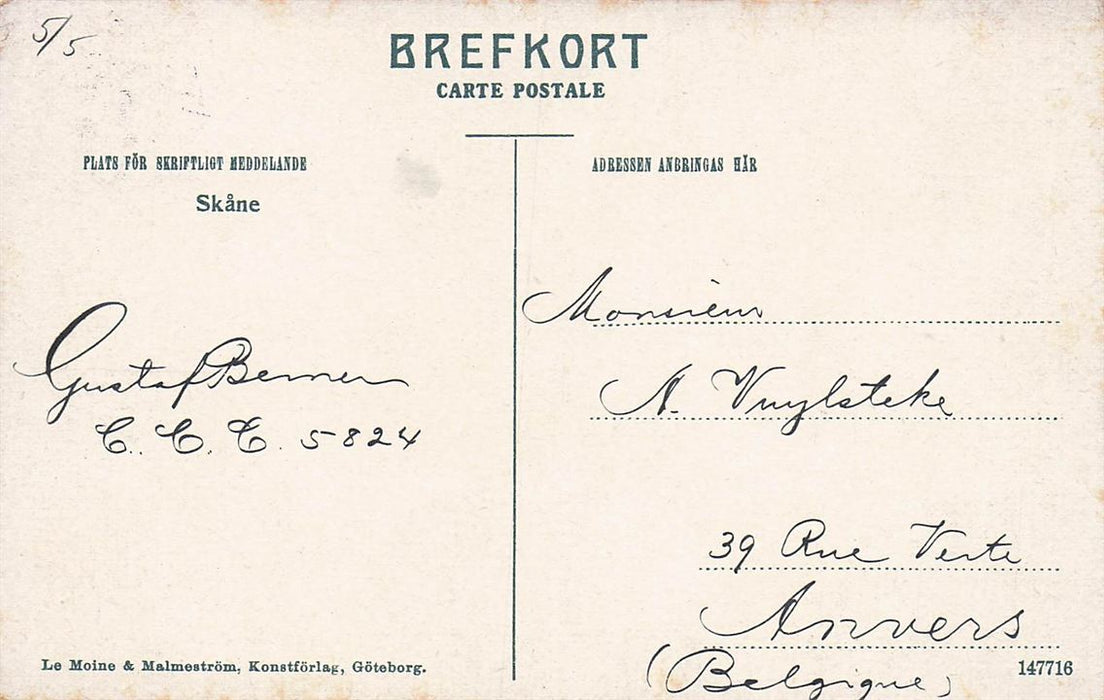 5/5
BREFKORT
CARTE POSTALE
PLATS FÖR SKRIFTLIGT MEDDELANDE
ADRESSEN ANBRINGAS HÄR
Skåne
Gustaf Berner
C. C. C. 5824
Monsieur
A. Vuylsteke
39 Rue Verte
Anvers
(Belgique)
Le Moine & Malmeström, Konstförlag, Göteborg.
147716